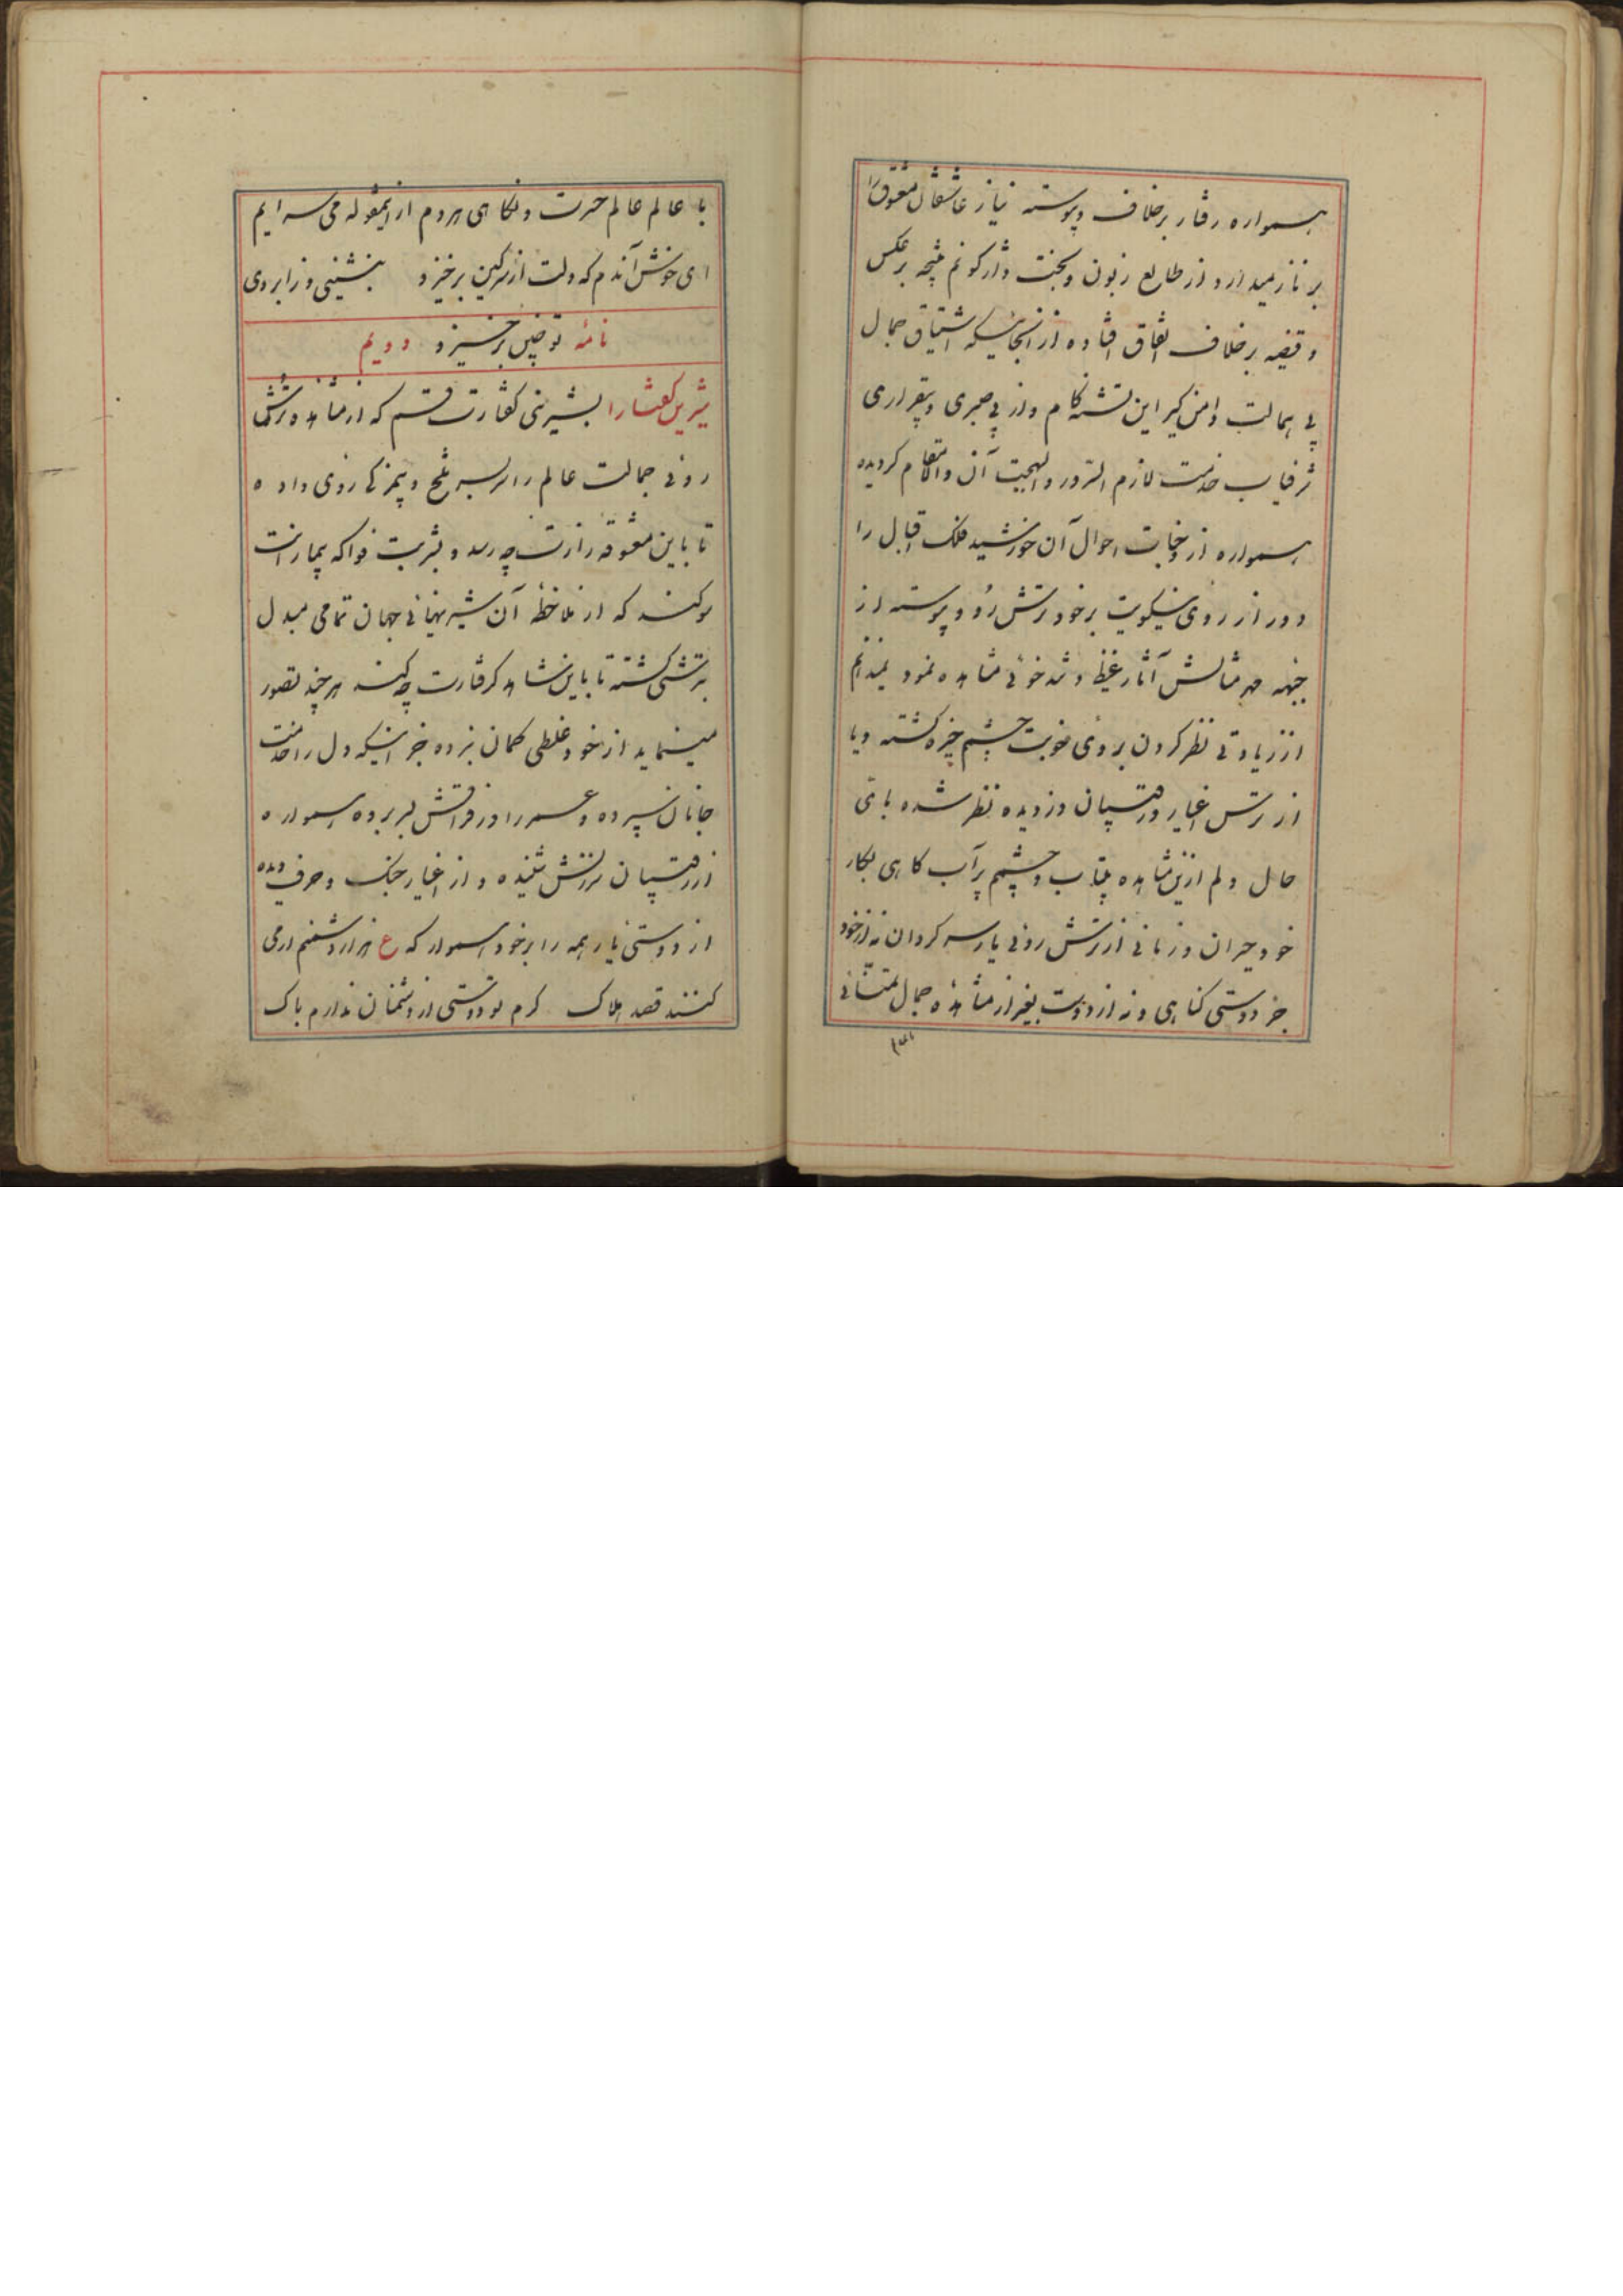 همواره رفتار برخلاف و پیوسته نیاز عاشقان معشوق را
بر ناز میدارد از طالع زبون و بخت واژکونم نتیجه برعکس
و قضیه برخلاف اتفاق افتاده از آنجائیکه اشتیاق جمال
بی همالت دامن کیر این تشنه کام و از بی صبری و بیقراری
شرفیاب خدمت لازم السرور والبهجت آن والامقام کردیده
همواره از وجنات احوال آن خورشید فلک اقبال را
دور از روی نیکویت برخود ترش رو و پیوسته از
جبهه مهر مثالش آثار غیظ و تندخوئی مشاهده نمود نمیدانم
از زیادتی نظر کردن بروی خوبت چشم خیره کشته و یا
از ترس اغیار و رقیبان دزدیده نظر شده باقی
حال دلم ازین مشاهده بیتاب و چشمم پر آب کاهی بکار
خود حیران و زمانی از ترش روئی یار سرکردان نه از خود
جز دوستی کناهی و نه از دوست بغیر از مشاهده جمال تمنائی
با عالم عالم حسرت و نکاهی هردم ازینمقوله می سرایم
ای خوش آندم که دلت از سر کین برخیزد بنشینی و ز ابروی
نامه تو چین برخیزد دویم
شیرین کفتارا بشیرینی کفتارت قسم که از مشاهده ترش
روئی جمالت عالم را سربسر تلخ و بیمزکی روی داده
تا باین معشوقه زارت چه رسد و بشربت فواکه بیمارانت
سوکند که از ملاحظه آن شیرینهائی جهان تمامی مبدل
بترشی کشته تا باین شاهد کرفتارت چه کند هر چند تصور
مینماید از خود غلطی کمان نبرده جز اینکه دل را خدمت
جانان سپرده و عمر را در فراقش بسر برده همواره
از رقیبان سرزنش شنیده و از اغیار جنک و حرف دیده
از دوستی یار همه را برخود هموار که ع هزار دشمنم ار می
کنند قصد هلاک کرم تو دوستی از دشمنان ندارم باک